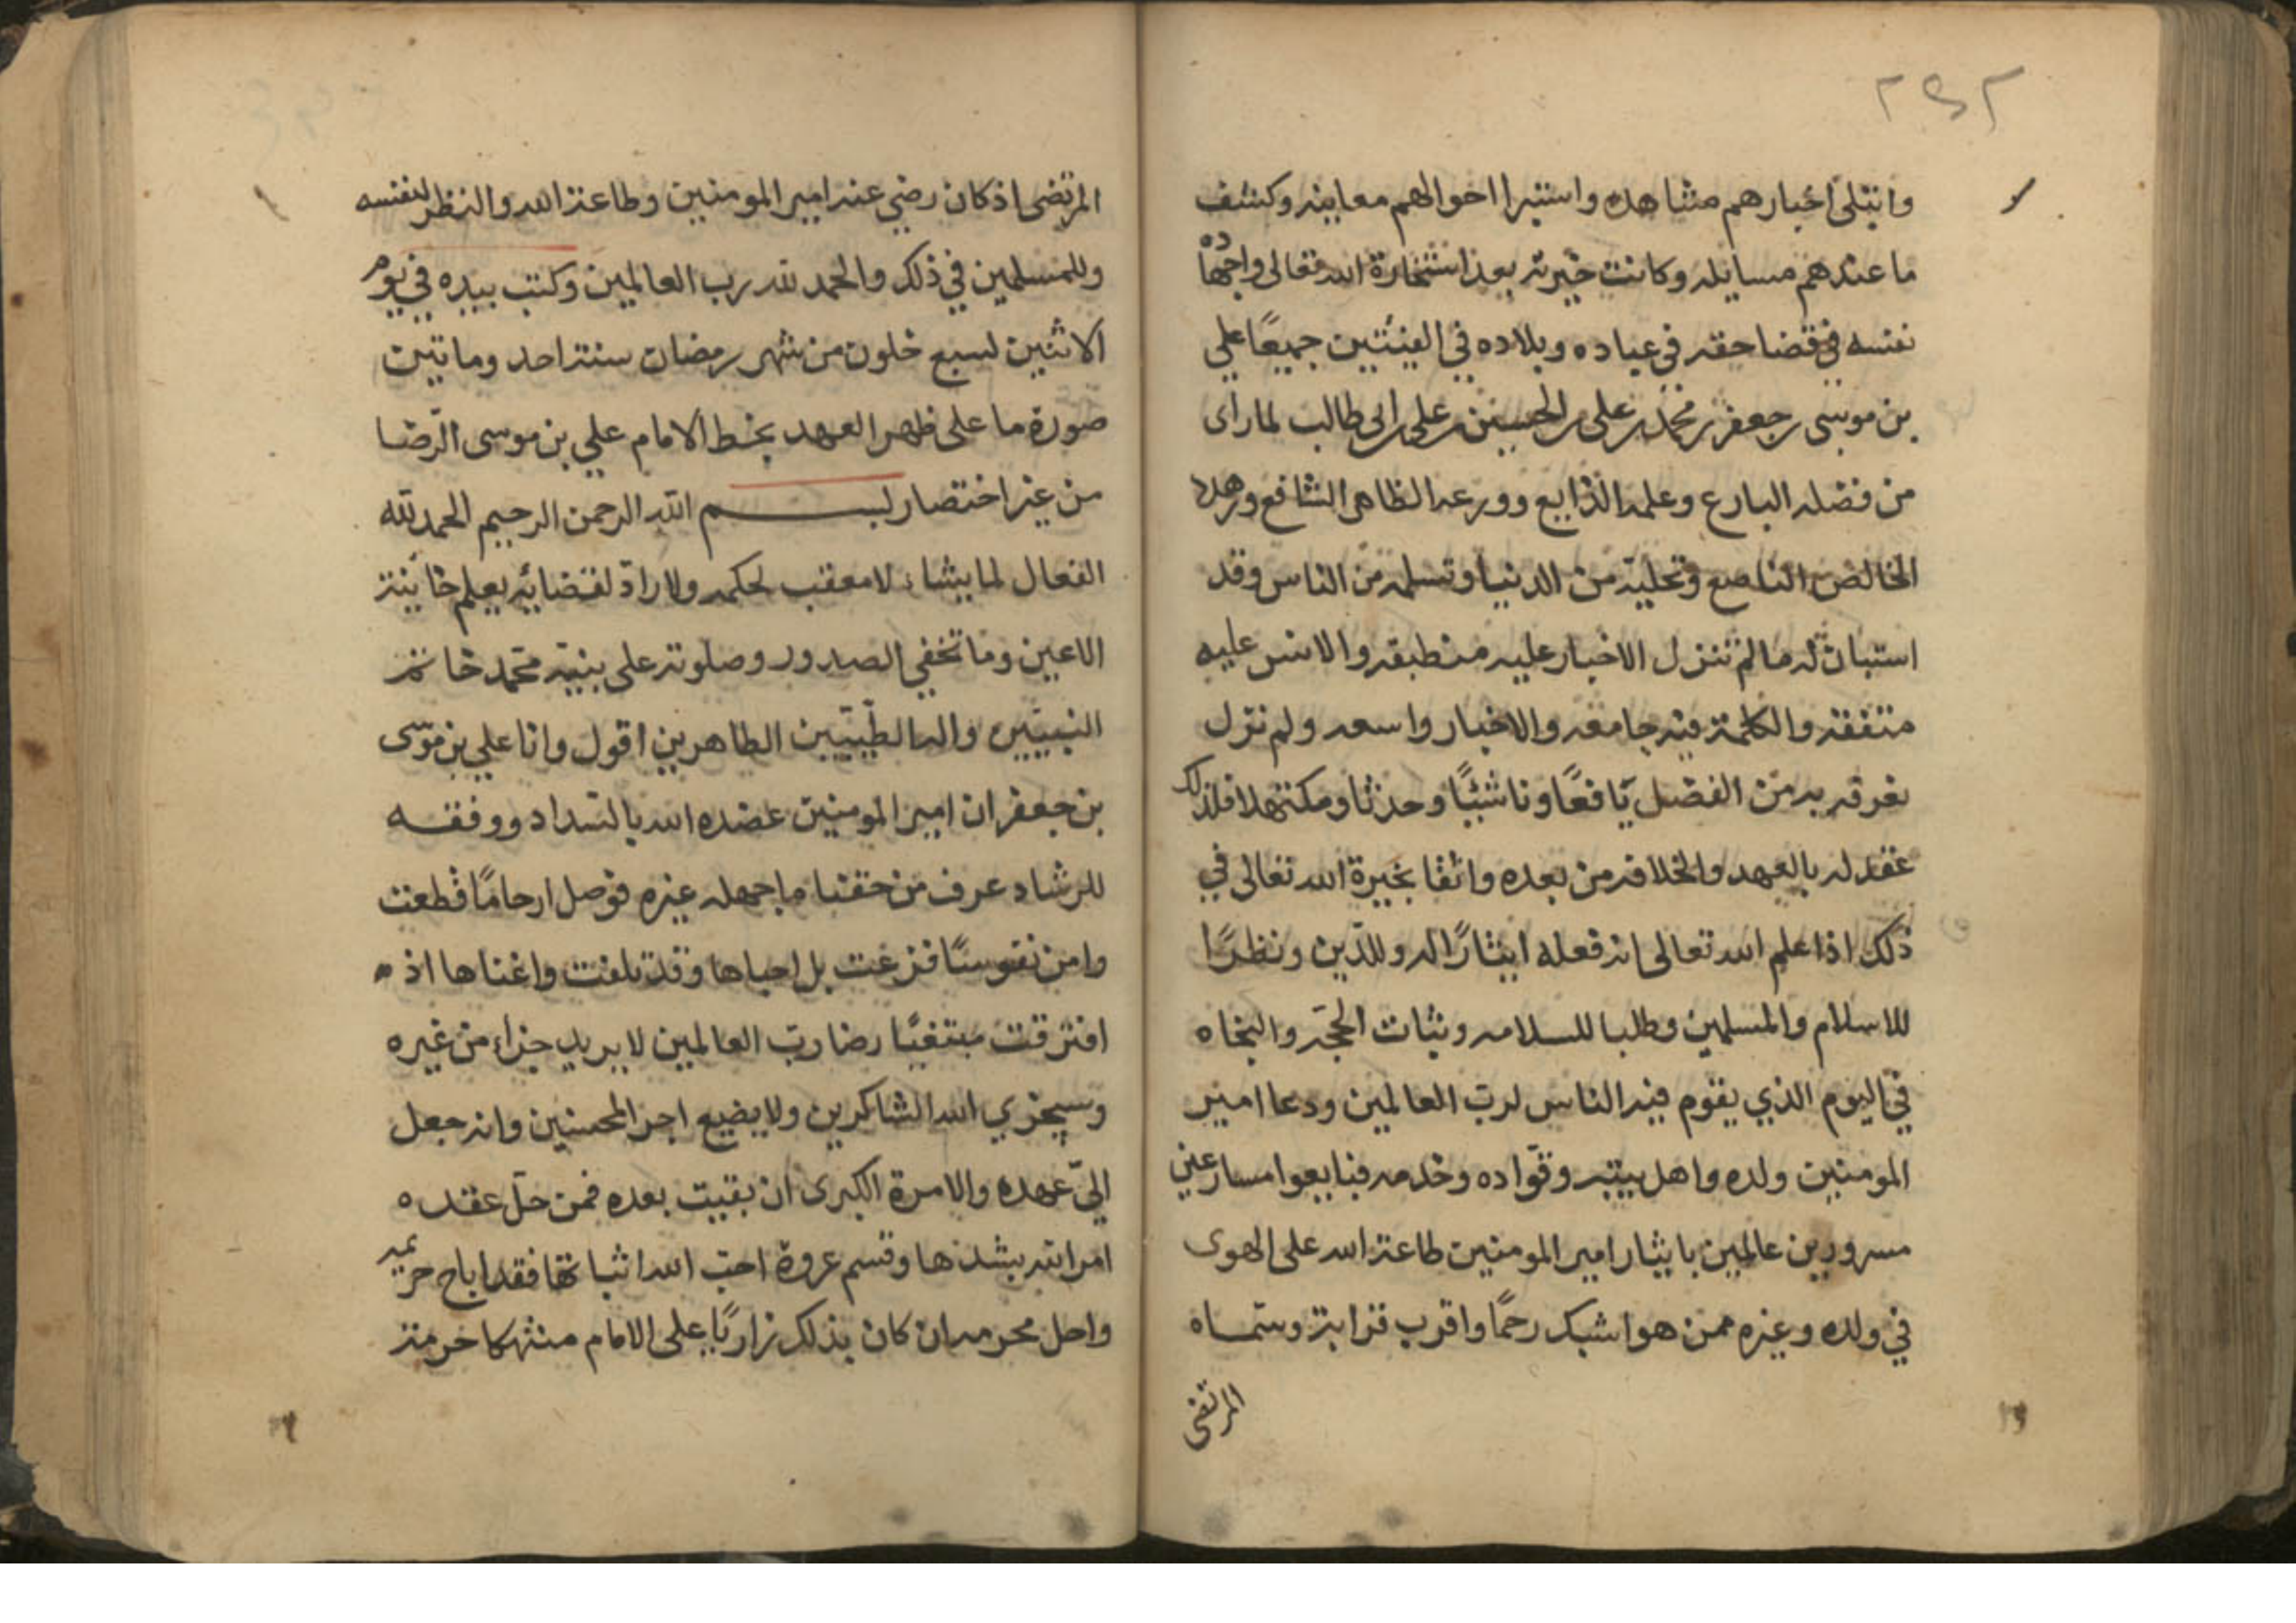 ٢٤٢
وابتلى اخبارهم مشاهده واستبرا احوالهم معاينه وكشف
ما عندهم مسايله وكانت خيرته بعد استخارة الله تعالى واجهاده
نفسه في قضا حقه في عباده وبلاده في الفئتين جميعًا علي
بن موسى بن جعفر بن محمد بن علي بن الحسين بن علي بن ابي طالب لما راى
من فضله البارع وعلمه الذايع وورعه الظاهر الشافع وزهده
الخالص الناصع وتخليته من الدنيا وتسلمه من الناس وقد
استبان له ما لم تنزل الاخبار عليه منطبقه والالسن عليه
متفقه والكلمة فيه جامعه والاخبار واسعه ولم نزل
نعرفه به من الفضل يَافعًا وناشئًا وحدثا ومكتهلا فلذلك
عقد له بالعهد والخلافه من بعده واثقا بخيرة الله تعالى في
ذلك اذا علم الله تعالى انه فعله ايثارًا له وللدّين ونظرًا
للاسلام والمسلمين وطلبا للسلامه وثبات الحجّه والنجاه
في اليوم الذي يقوم فيه الناس لرب العالمين ودعا امير
المومنين ولده واهل بيته وقوّاده وخدمه فبايعوا مسارعين
مسرورين عالمين بايثار امير المومنين طاعة الله على الهوى
في ولده وغيره ممن هو اشبك رحمًا واقرب قرابة وسمّاه
المرتضى
المرتضى اذ كان رضي عند امير المومنين وطاعة الله والنظر لنفسه
وللمسلمين في ذلك والحمد لله رب العالمين وكتب بيده في يوم
الاثنين لسبع خلون من شهر رمضان سنة احد وماتين
صورة ما على ظهر العهد بخط الامام علي بن موسى الرّضا
من غير اختصار بسم الله الرحمن الرحيم الحمد لله
الفعال لما يشاء لا معقب لحكمه ولا رادّ لقضائه يعلم خائنة
الاعين وما تخفي الصدور وصلوته على نبيّه محمّد خاتم
النبيّين واله الطيّبين الطاهرين اقول وانا علي بن موسى
بن جعفر ان امير المومنين عضده الله بالسّداد ووفقه
للرشاد عرف من حقنا ما جهله غيره فوصل ارحامًا قطعت
وامن نفوسًا فزعت بل احياها وقد تلفت واغناها اذ
افترقت مبتغيًا رضا ربّ العالمين لا يريد جزاء من غيره
وسيجزي الله الشاكرين ولا يضيع اجر المحسنين وانه جعل
اليّ عهده والامرة الكبرى ان بقيت بعده فمن حلّ عقده
امر الله بشدها وقسم عروة احبّ الله اثباتها فقد اباح حريمه
واحل محرمه ان كان بذلك زاريًا على الامام منتهكا حرمة